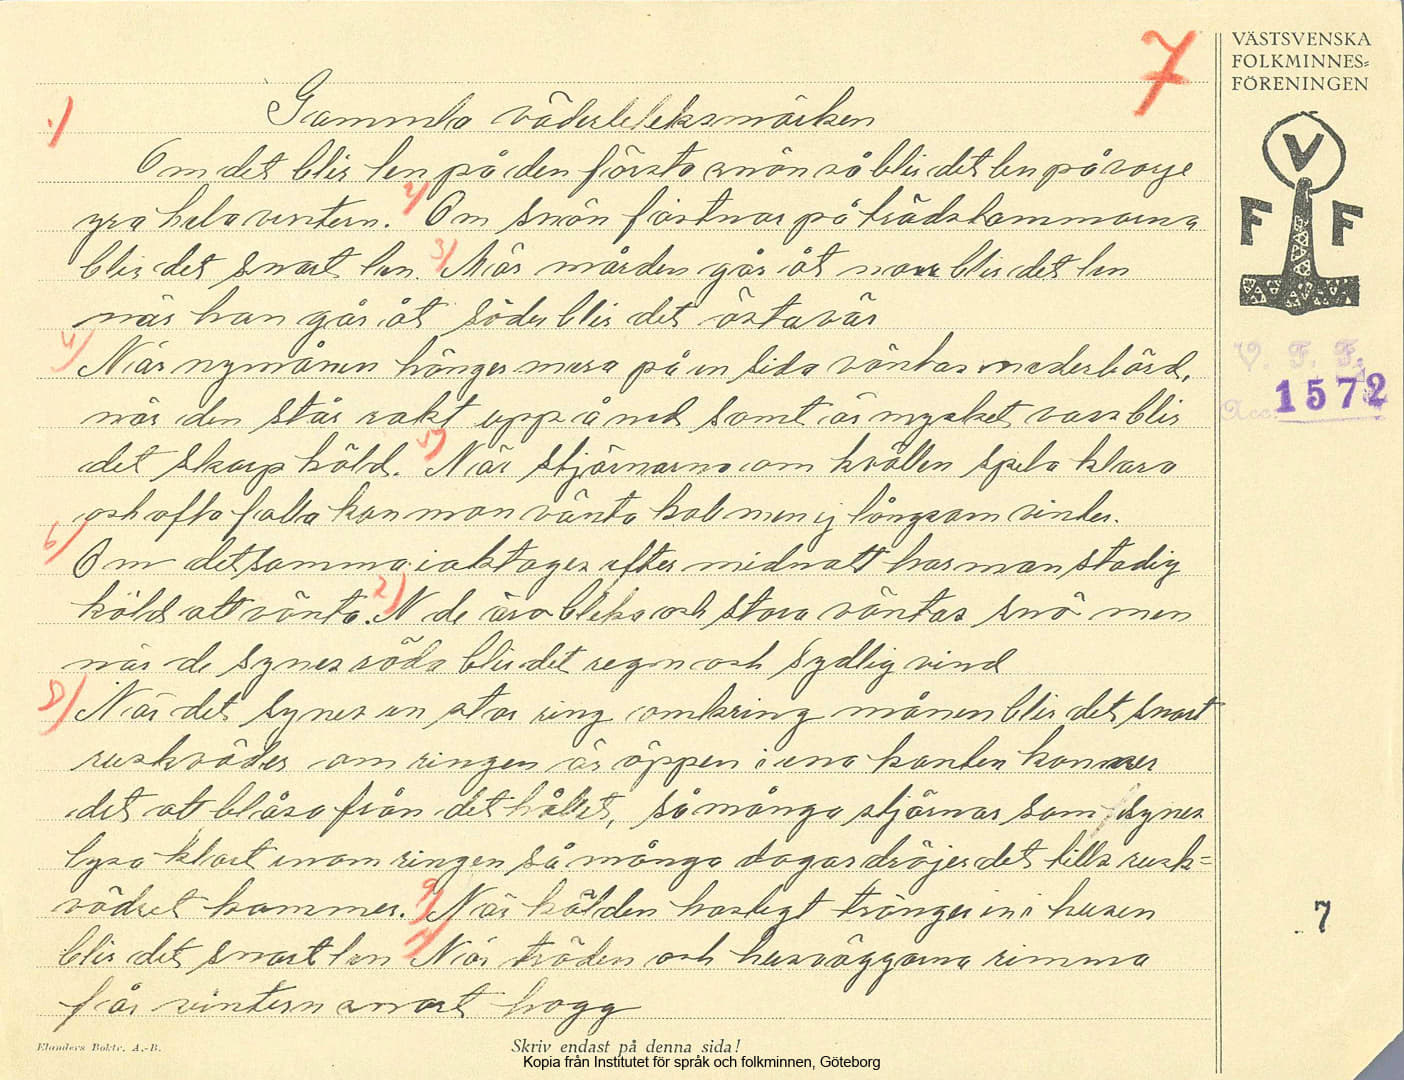 7
VÄSTSVENSKA
FOLKMINNES=
FÖRENINGEN
V
F F
V. F. F.
Acc. 1572
1) Gammla väderleksmärken
Om det blir len på den första snön så blir det len på varje
yra hela vintern. 2) Om snön fastnar på trädstammarna
blir det snart len. 3) När mården går åt norr blir det len
när han går åt söder blir det östavär
4) När nymånen hänger mera på en sida väntas nederbörd,
når den står rakt upp å ned samt är mycket vass blir
det skarp köld. 5) När stjärnarna om kvällen spela klara
och ofta falla kan man vänta kall men ej långsam vinter.
6) Om detsamma iakttages efter midnatt har man stadig
köld att vänta. 7) N de äro bleka och stora väntas snö men
när de synes röda blir det regn och sydlig vind
8) När det synes en stor ring omkring månen blir det snart
ruskväder om ringen är öppen i ena kanten kommer
det at blåsa från det hållet, så många stjärnar som synes
lysa klart inom ringen så många dagar dröjer det tills rusk=
vädret kommer. 9) När kölden hastigt tränger in i husen
blir det snart len När träden och husväggarna rimma
får vintern snart hogg
7
Elanders Boktr. A.-B.
Skriv endast på denna sida!
Kopia från Institutet för språk och folkminnen, Göteborg